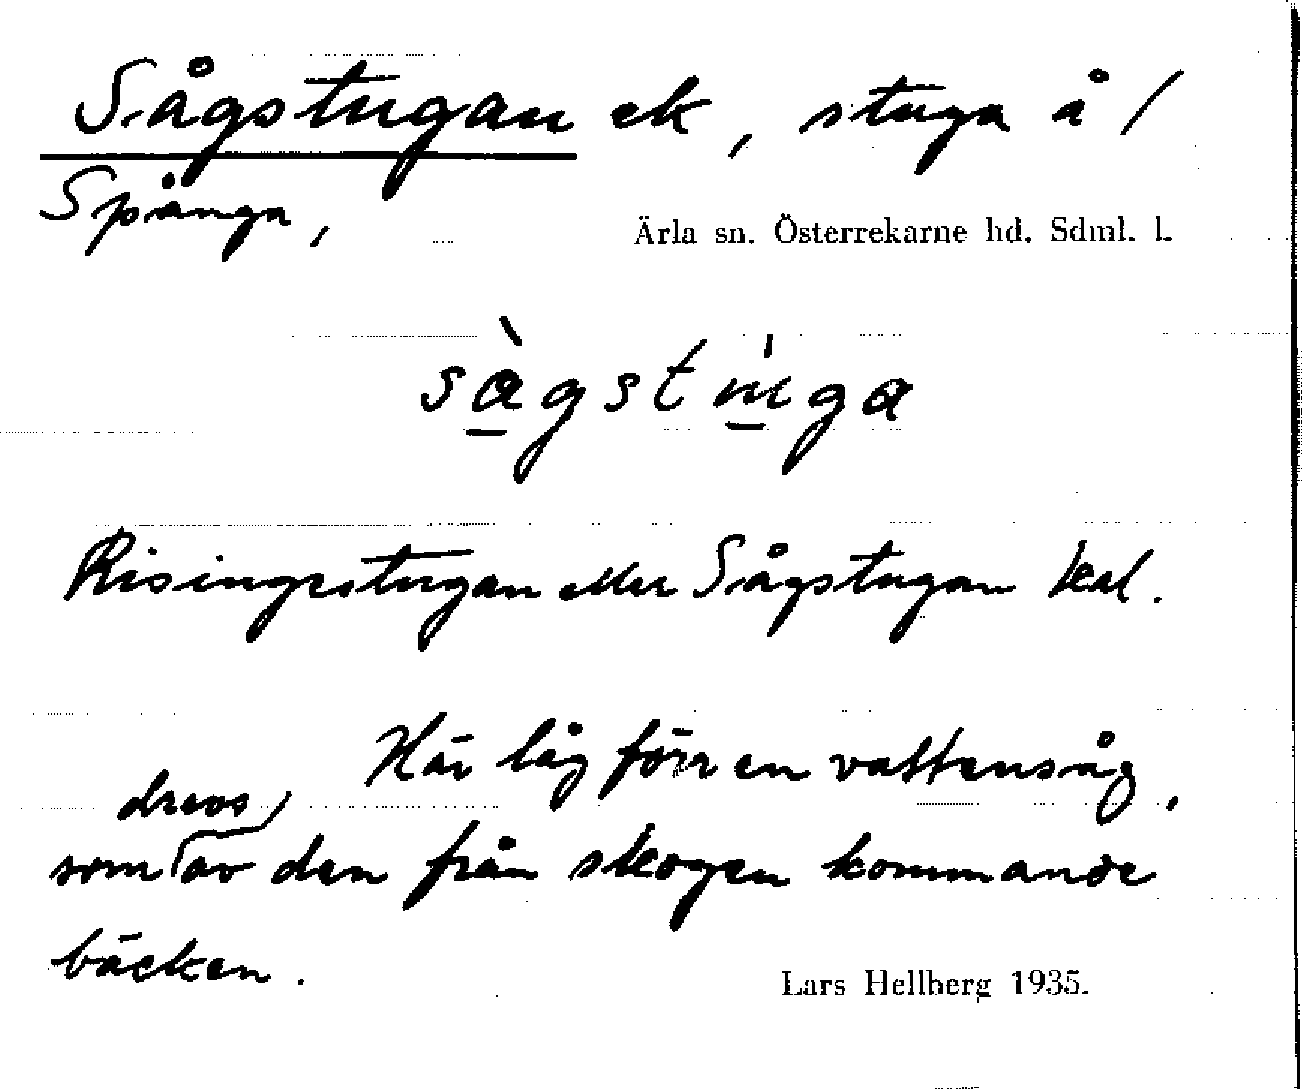 Sågstugan ek, stuga å /
Spånga,
Ärla sn. Österrekarne hd. Sdml. l.
sàgstu̍ga
Risingestugan eller Sågstugan kal.
Här låg förr en vattensåg,
drevs
som av den från skogen kommande
bäcken.
Lars Hellberg 1935.